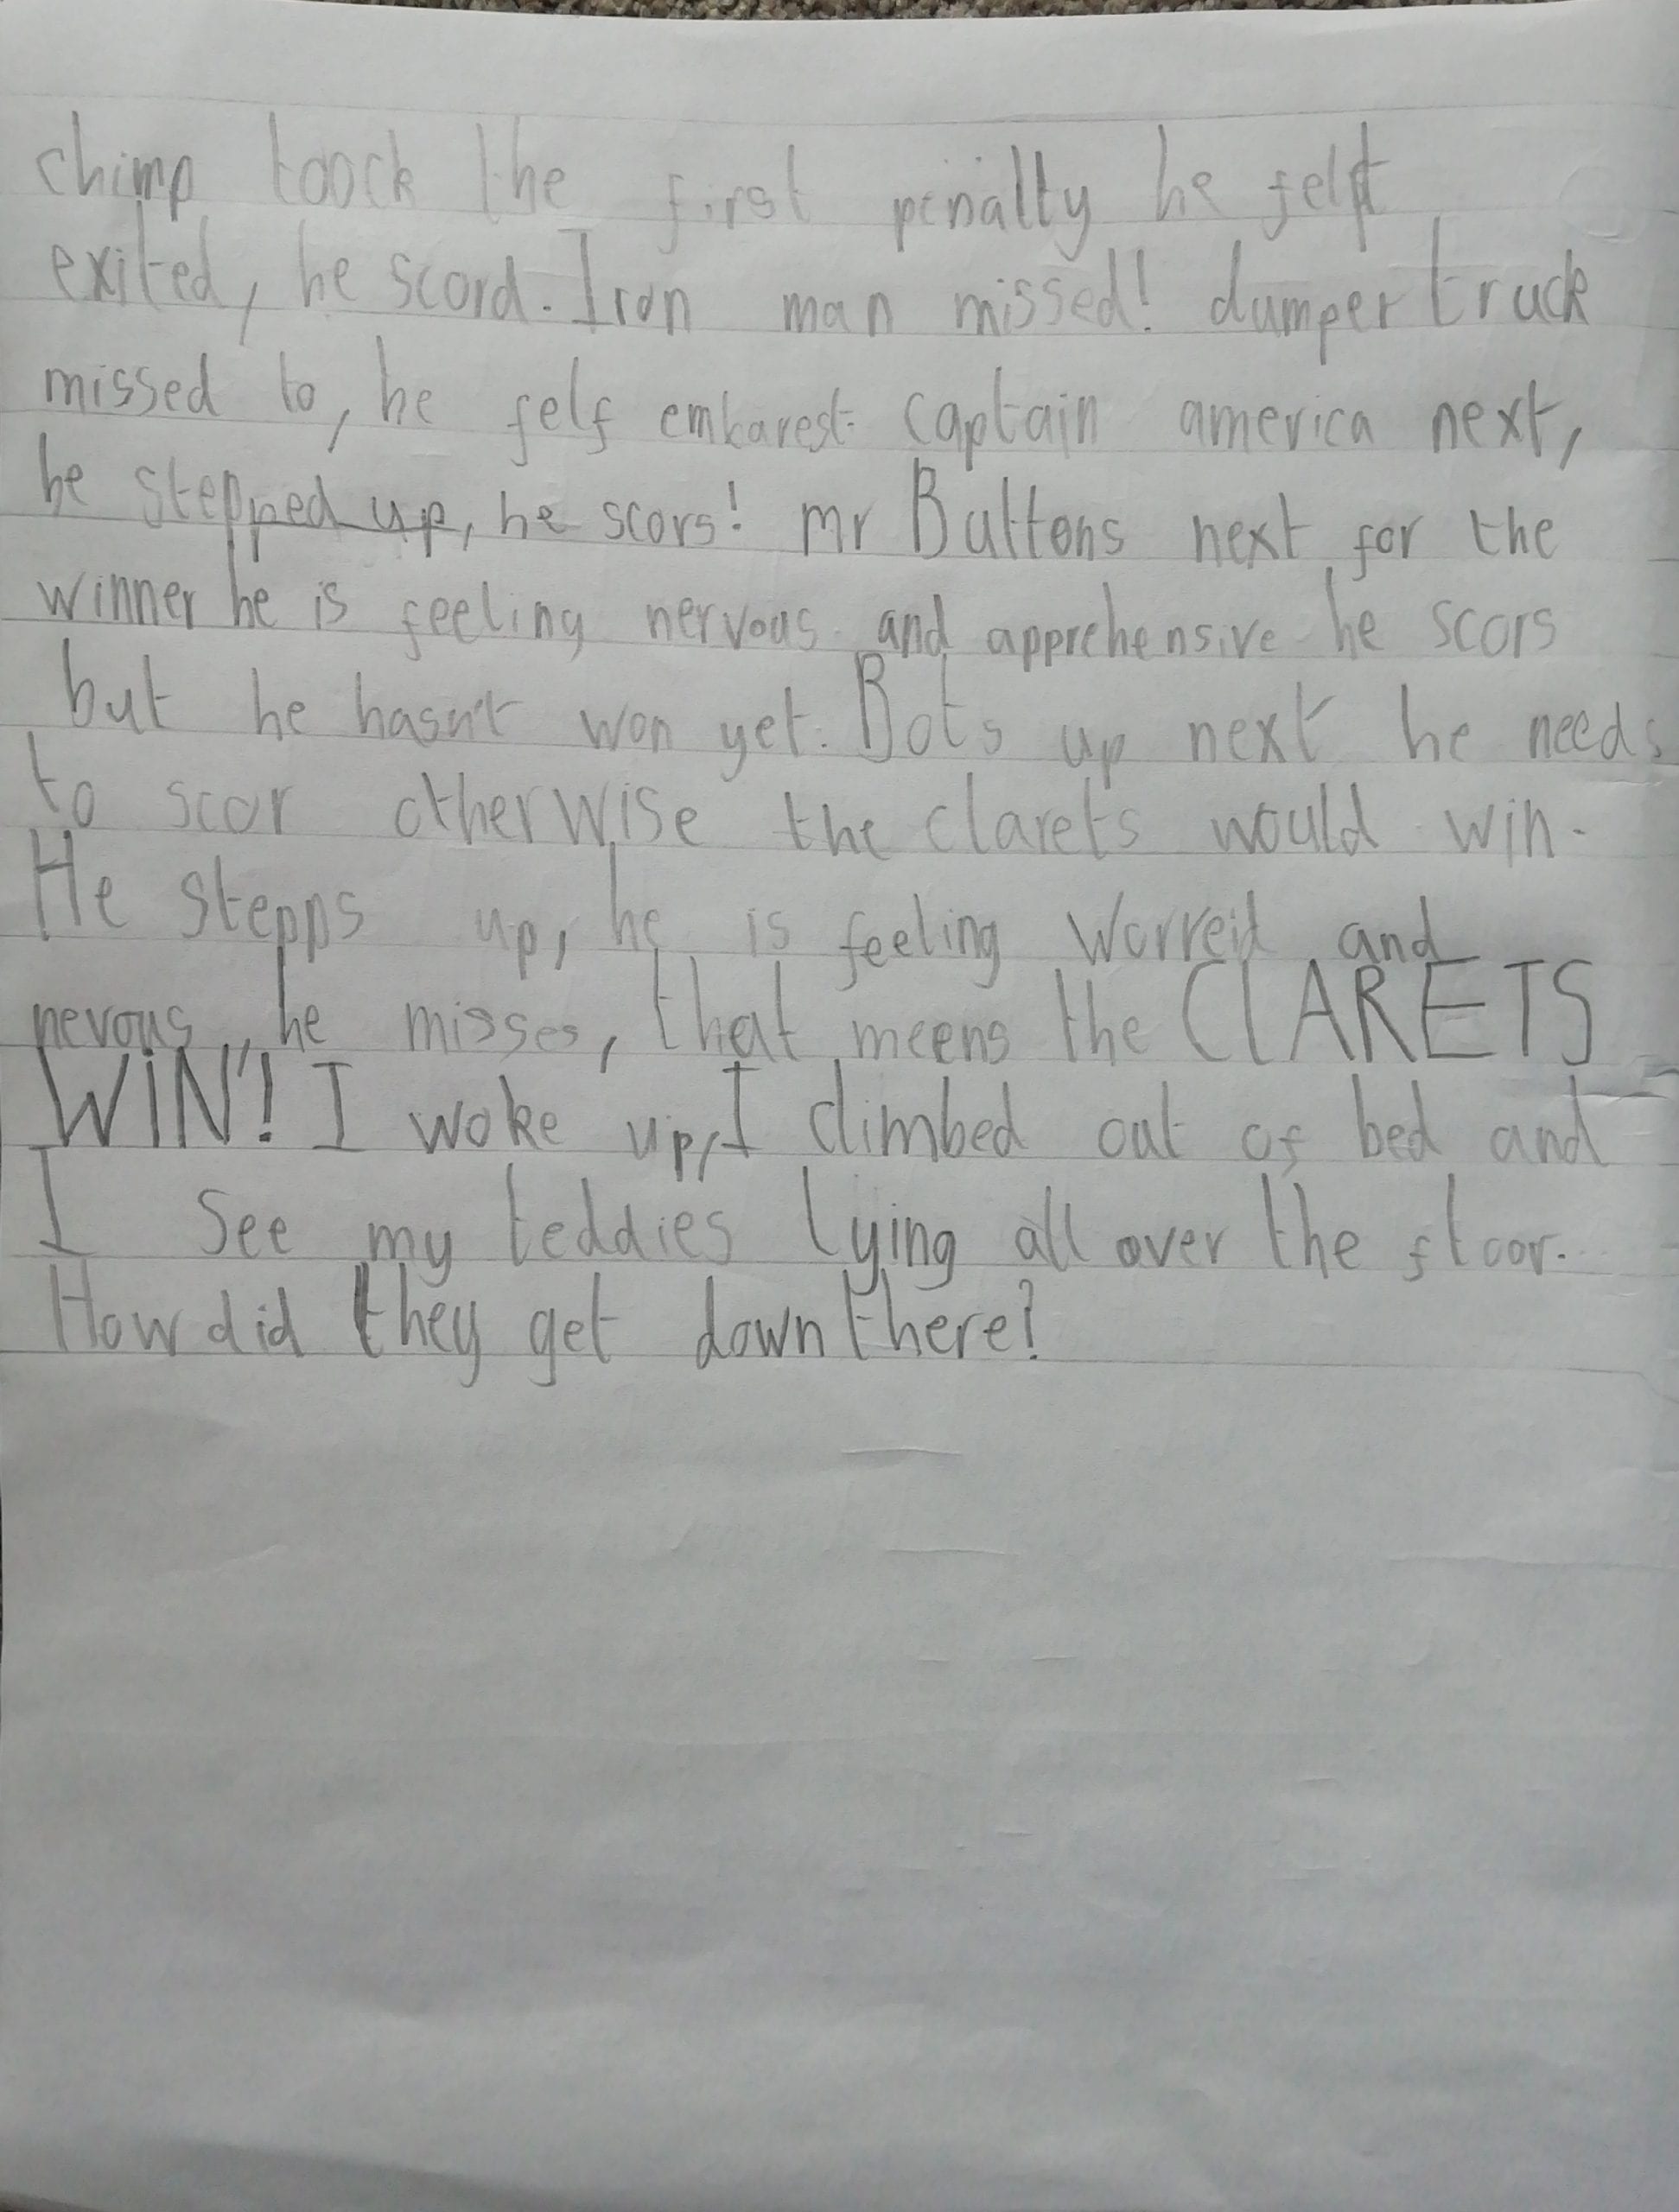 chimp toock the first penalty he felt
exited, he scord. Iron man missed! dumper truck
missed to, he felf embarest. captain america next,
he stepped up, he scors! mr Buttons next for the
winner he is feeling nervous and apprehensive he scors
but he hasn't won yet. Bots up next he needs
to scor otherwise the clarets would win.
He stepps up, he is feeling worreid and
nevous, he misses, that meens the ClARETS
WiN'! I woke up, I climbed out of bed and
I see my teddies lying all over the floor.
How did they get down there?